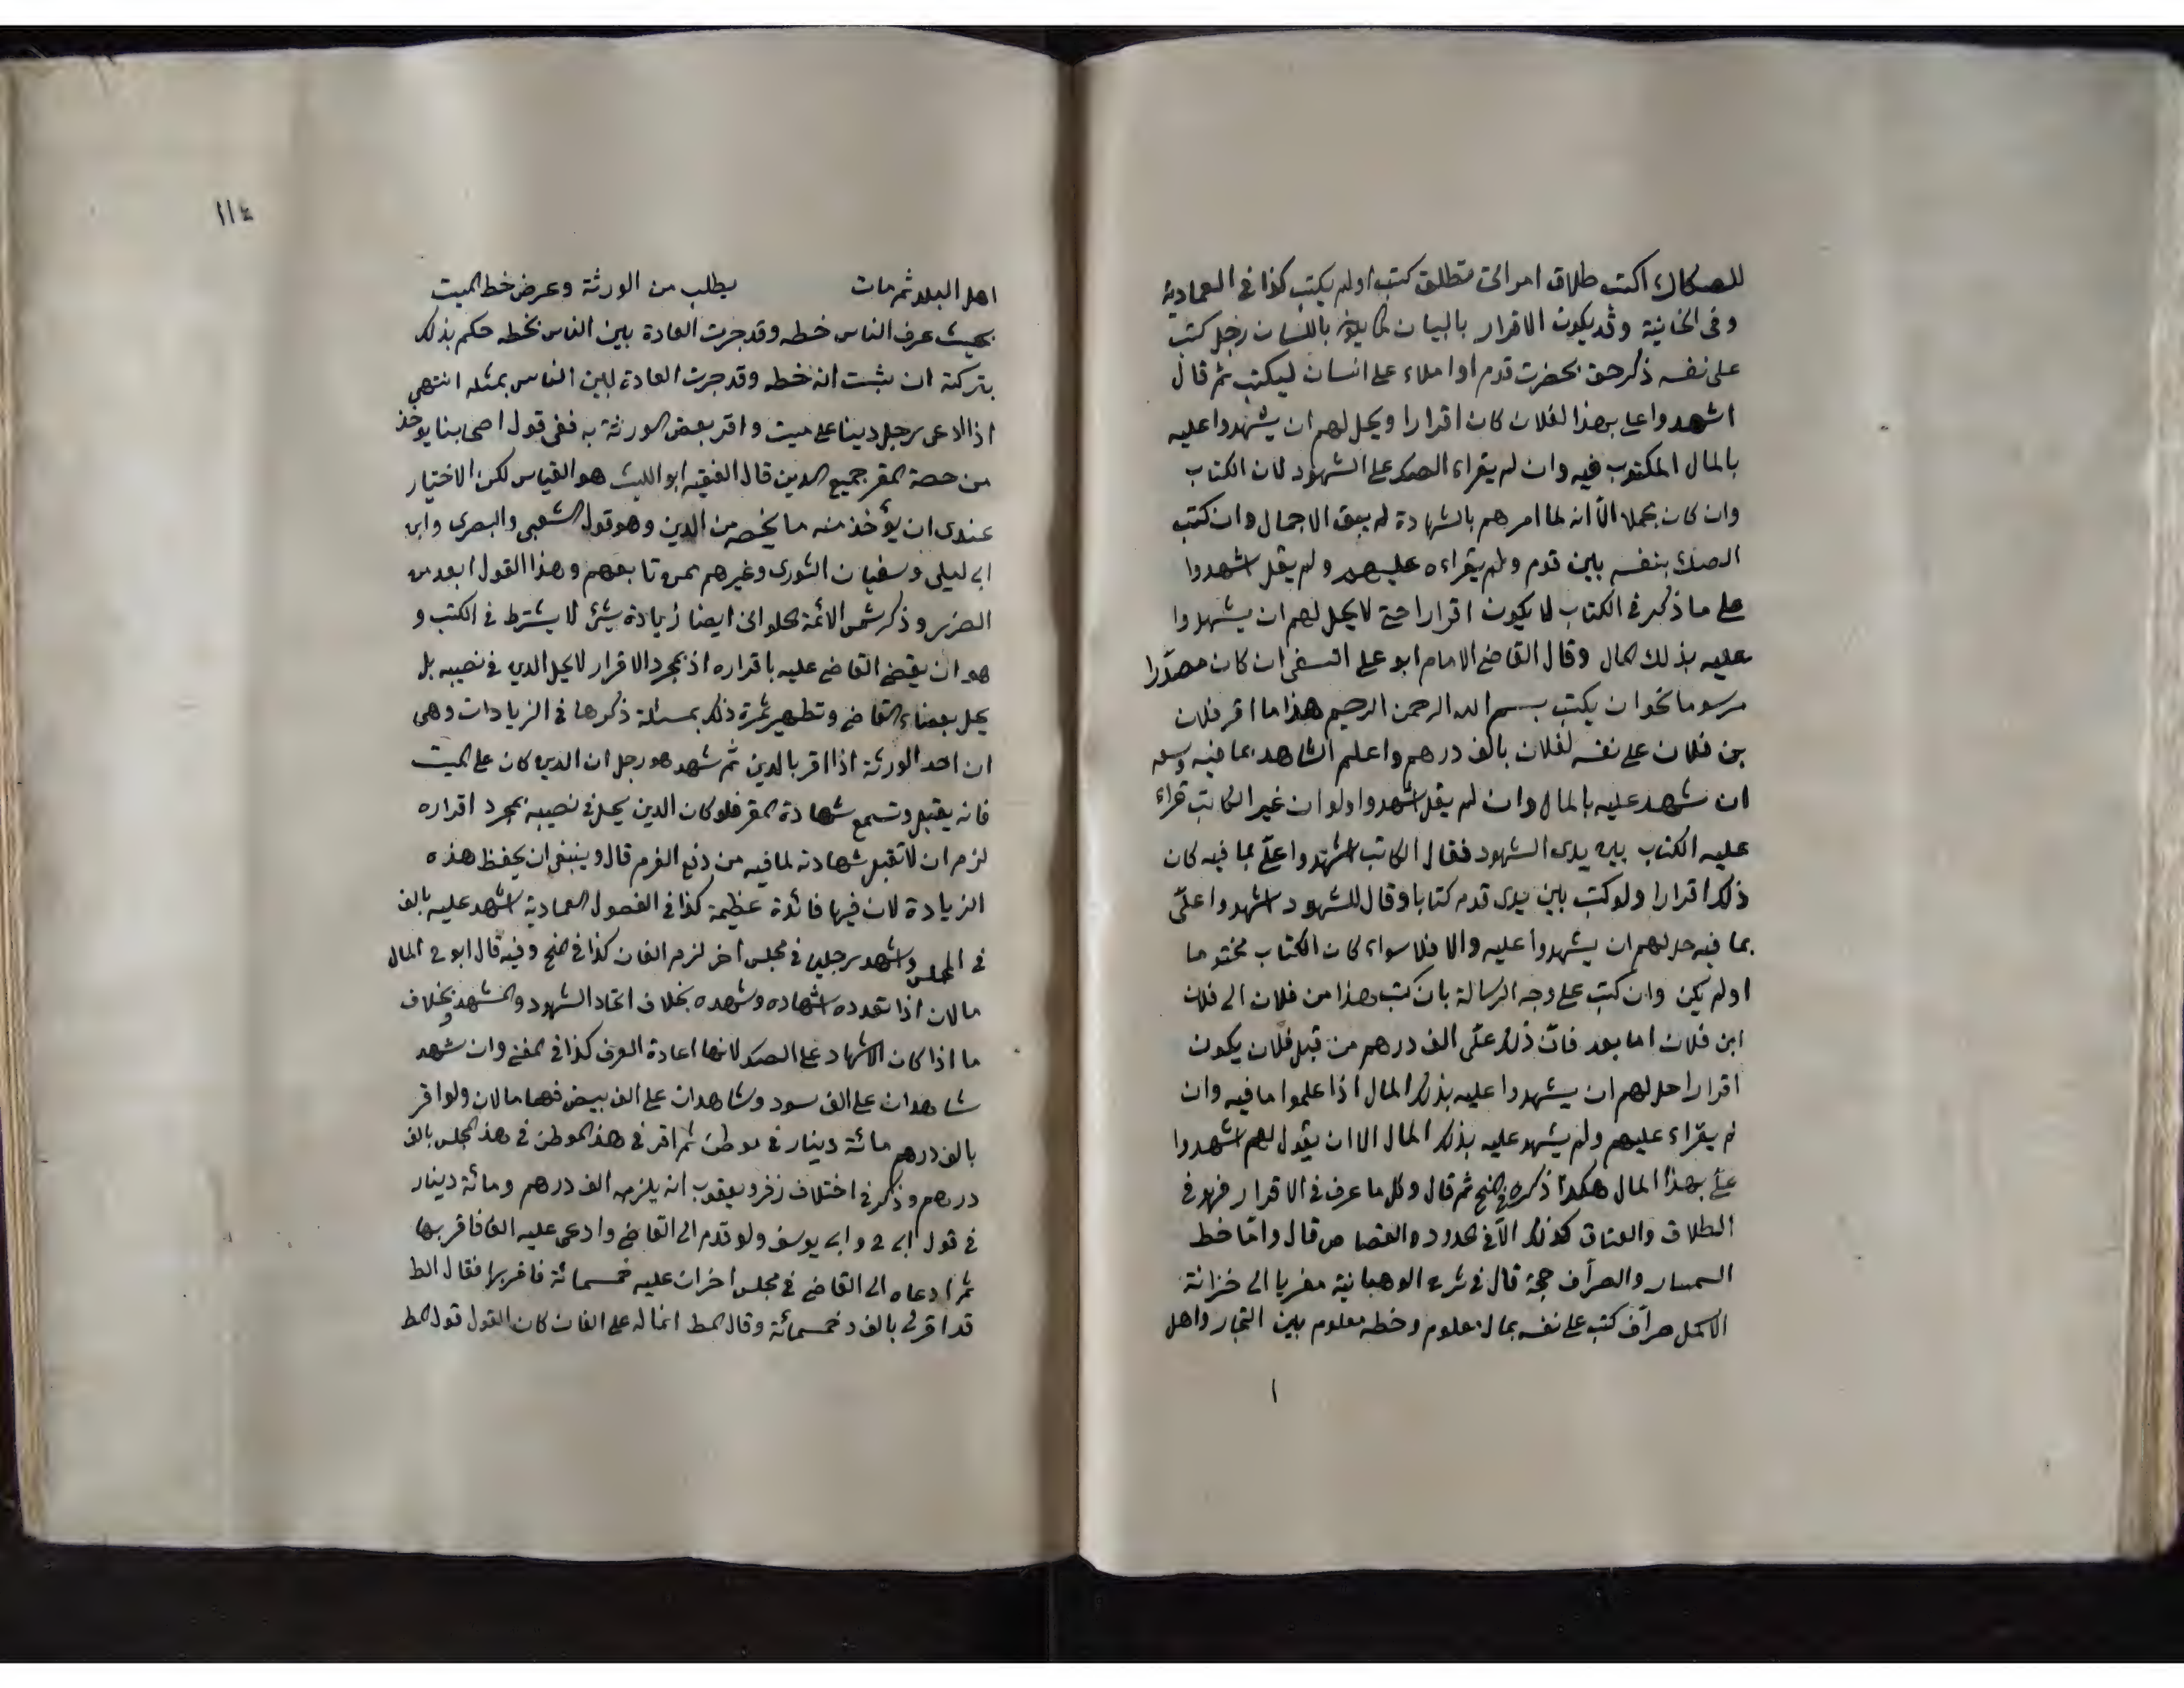 للصكاك اكتب طلاق امراتى تطلق كتب اولم يكتب كذا فى العمادية
وفى الخانية وقد يكون الاقرار بالبيان كما يكون باللسان رجل كتب
على نفسه ذكر حق بحضرت قدم او املاء على انسان ليكتب ثم قال
اشهدوا على بهذا لفلان كان اقرارا ويحل لهم ان يشهدوا عليه
بالمال المكتوب فيه وان لم يقراء الصك على الشهود لان الكتاب
وان كان مجملا الا انه لما امرهم بالشهادة لم يبق الاجمال وان كتب
الصك بنفسه بين قدم ولم يقراءه عليهم ولم يقل اشهدوا
على ما ذكر فى الكتاب لا يكون اقرارا حتى لا يحل لهم ان يشهدوا
عليه بذلك المال وقال القاضى الامام ابو على النسفى ان كان مصدّرا
مرسوما نحو ان يكتب بسم الله الرحمن الرحيم هذا ما اقر فلان
بن فلان على نفسه لفلان بالف درهم واعلم الشاهد بما فيه وسعه
ان شهد عليه بالمال وان لم يقل اشهدوا ولو ان غير الكاتب قراء
عليه الكتاب بين يدى الشهود فقال الكاتب اشهدوا علىّ بما فيه كان
ذلك اقرارا ولو كتب بين يدى قدم كتابا وقال للشهود اشهدوا علىّ
بما فيه حل لهم ان يشهدوا عليه والا فلا سواء كان الكتاب مختوما
اولم يكن وان كتب على وجه الرسالة بان كتب هذا من فلان الى فلان
ابن فلان اما بعد فان ذلك علّى الف درهم من قبل فلان يكون
اقرارا حل لهم ان يشهدوا عليه بذلك المال اذا علموا ما فيه وان
لم يقراء عليهم ولم يشهد عليه بذلك المال الا ان يقول لهم اشهدوا
علىّ بهذا المال هكذا ذكره فى المنح ثم قال وكل ما عرف فى الاقرار فهو فى
الطلاق والعتاق كذلك الا فى الحدود والقصاص قال وامّا خط
السمسار والصراف حجة قال فى شرح الوهبانية مغريا الى خزانة
الاكمل صراف كتب على نفسه بمال معلوم وخطه معلوم بين التجار واهل
١
١١٤
اهل البلد ثم مات يطلب من الورثة وعرض خط الميت
بحيث عرف الناس خطه وقد جرت العادة بين الناس بخطه حكم بذلك
بتركته ان يثبت انه خطه وقد جرت العادة بين الناس بمثله انتهى
اذا ادعى رجل دينا على ميت واقر بعض الورثة به ففى قول اصحابنا يوخذ
من حصة المقر جميع الدين قال الفقيه ابو الليث هو القياس لكن الاختيار
عندى ان يؤخذ منه ما يخصه من الدين وهو قول الشعبى والبصرى وابن
ابى ليلى وسفيان الثورى وغيرهم ممن تابعهم وهذا القول ابعد من
الضرر وذكر شمس الائمة الحلوانى ايضا زيادة شئ لا يشترط فى الكتب و
هو ان يقضى القاضى عليه باقراره اذ بمجرد الاقرار لا يحل الدين فى نصيبه بل
يحل بقضاء القاضى وتظهر ثمرة ذلك بمسئلة ذكرها فى الزيادات وهى
ان احد الورثة اذا اقر بالدين ثم شهد هو رجل ان الدين كان على الميت
فانه يقبل وتسمع شهادة المقر فلو كان الدين يحل فى نصيبه بمجرد اقراره
لزم ان لا تقبل شهادته لما فيه من دفع الغرم قال وينبغى ان يحفظ هذه
الزيادة لان فيها فائدة عظيمة كذا فى الفصول العمادية اشهد عليه بالف
فى المجلس واشهد رجلين فى مجلس اخر لزم الفان كذا فى المنح وفيه قال ابو ح المال
مالان اذا تعدده اشهاده وشهده بخلاف اتحاد الشهود والمشهد وبخلاف
ما اذا كان الاشهاد على الصك لانها اعادة العرف كذا فى المغنى وان شهد
شاهدان على الف سود وشاهدان على الف بيض فهما مالان ولو اقر
بالف درهم مائة دينار فى موطن ثم اقر فى هذ الموطن فى هذ المجلس بالف
درهم وذكر فى اختلاف زفر ويعقوب انه يلزمه الف درهم ومائة دينار
فى قول ابى ح وابى يوسف ولو قدم الى القاضى وادعى عليه الفا فاقر بها
ثم ادعاه الى القاضى فى مجلس اخر ان عليه خمسمائة فاقر بها فقال الط
قد اقر لى بالف وخمسمائة وقال المط انما له على الفان كان القول قول المط